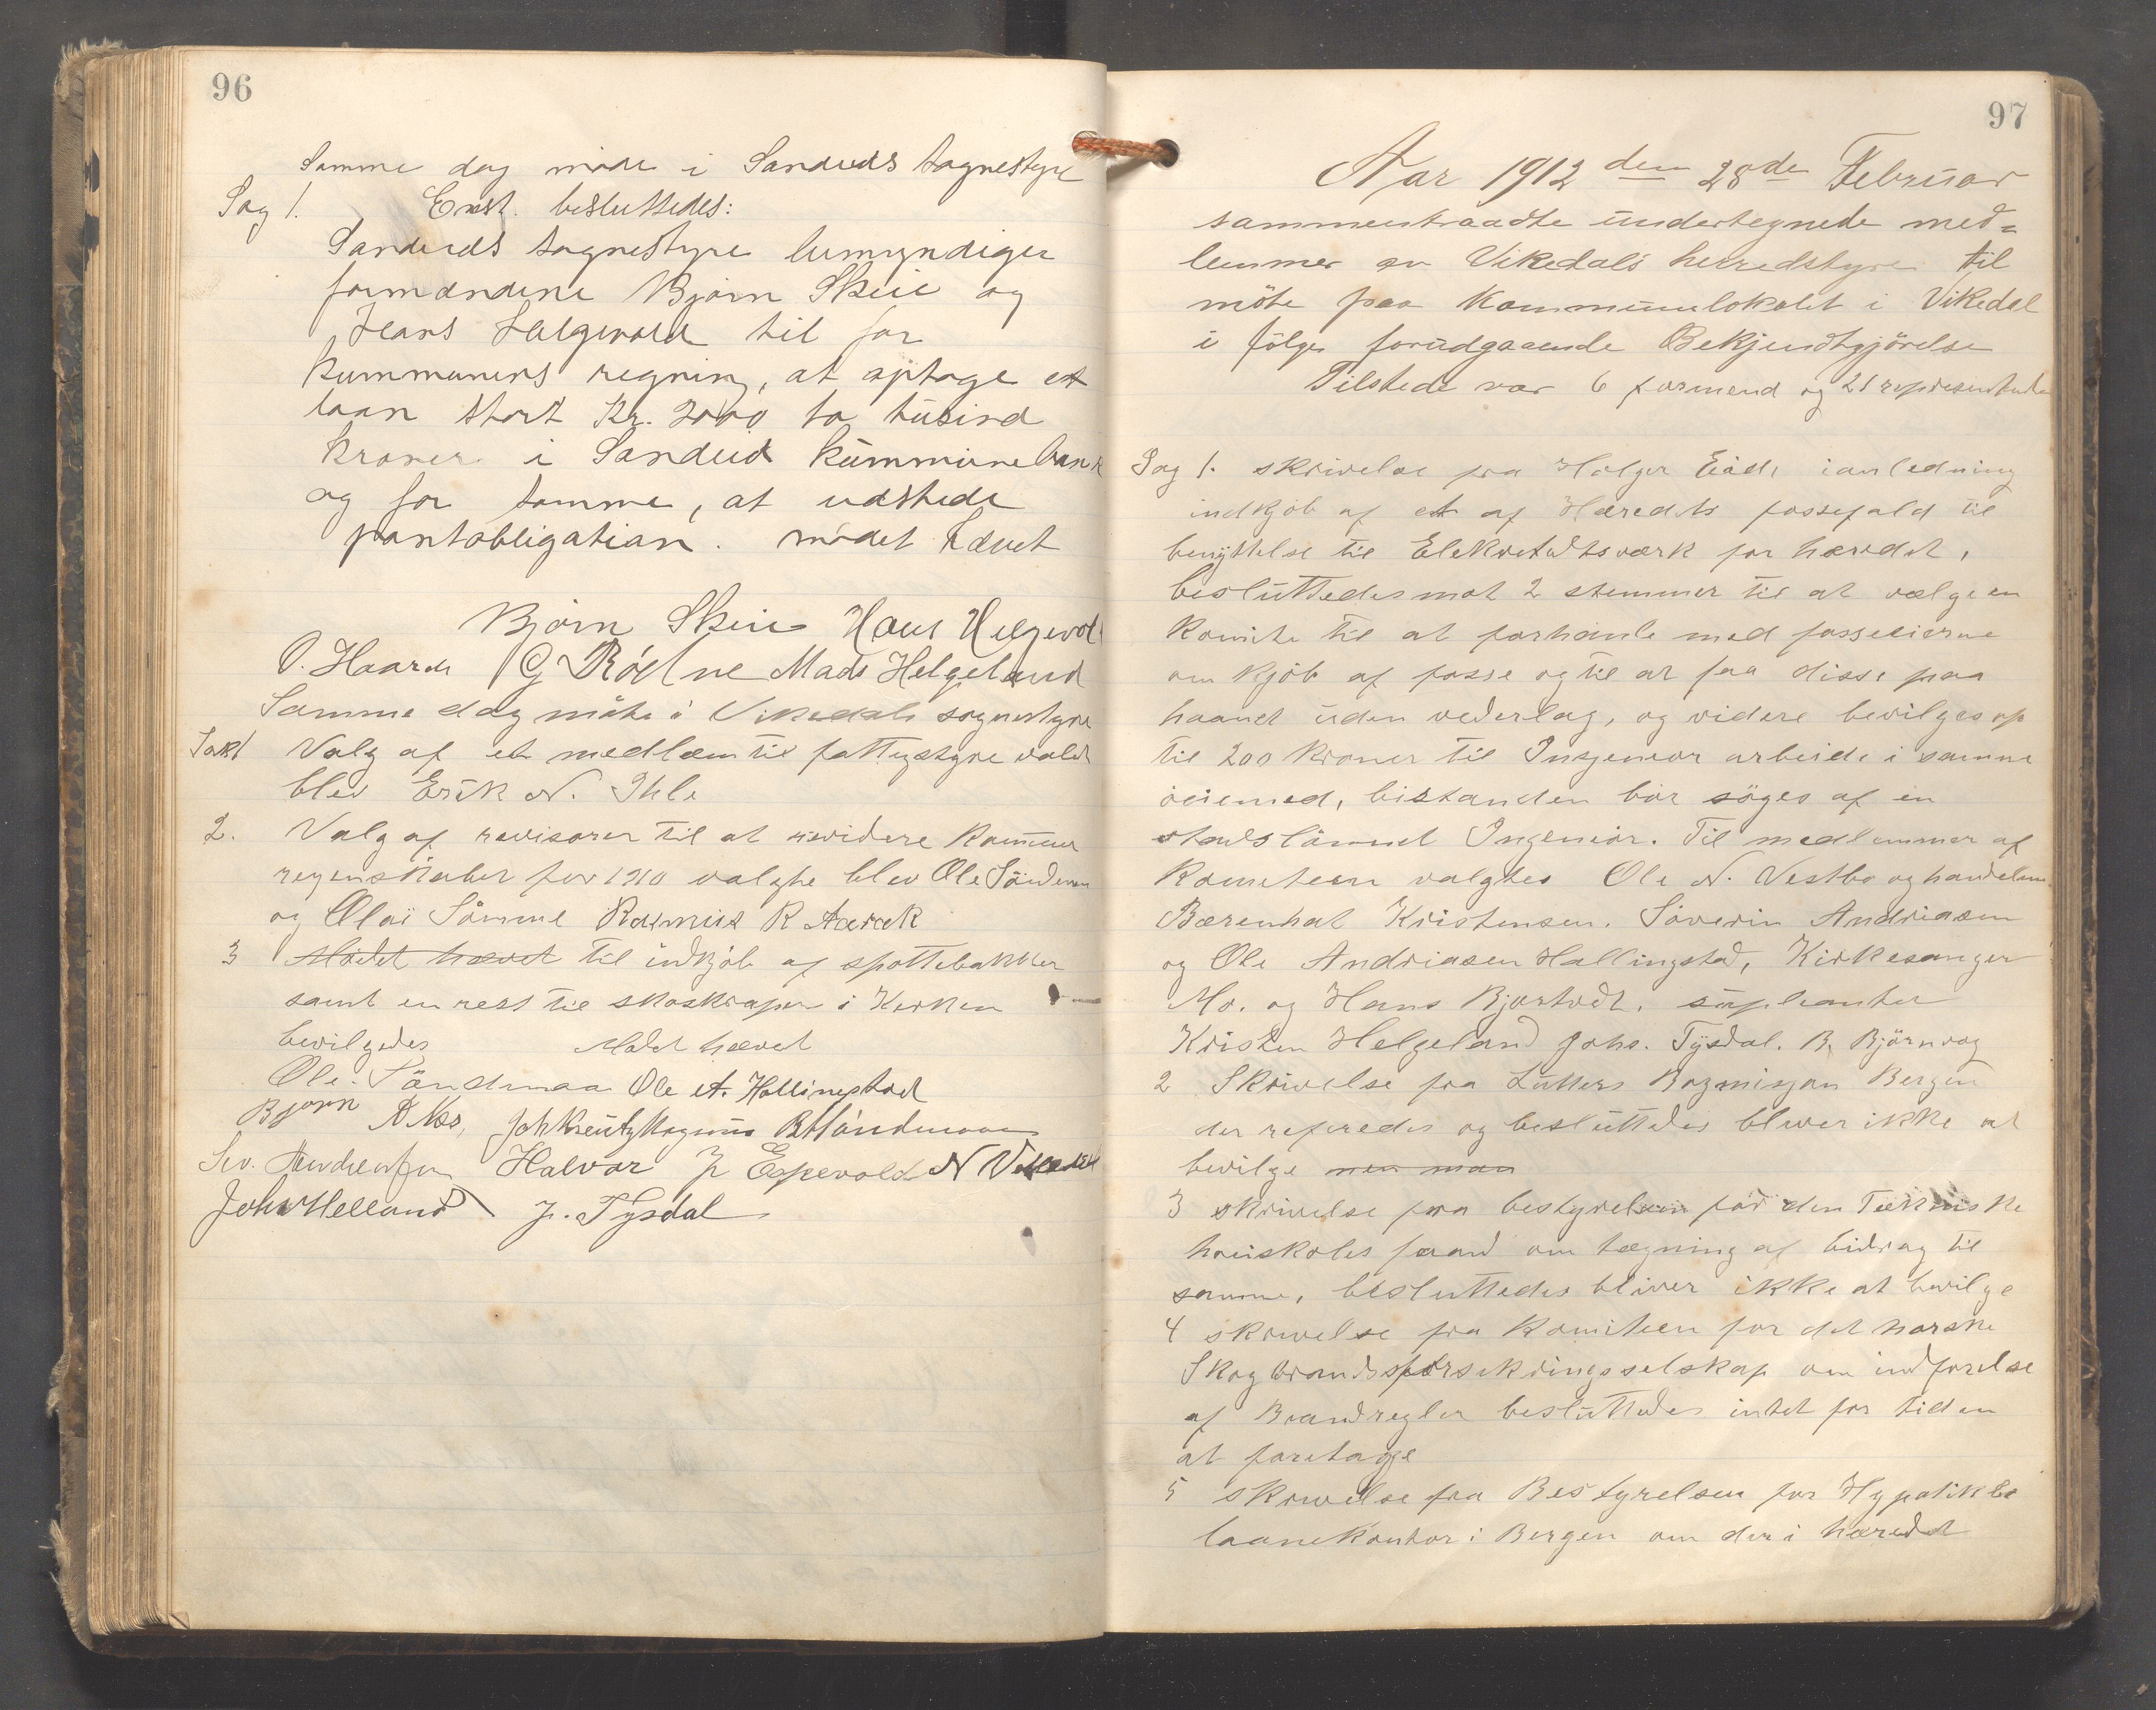 96
Samme dag møde i Sandeids sognestyre
Sag 1. Enst. besluttedes:
Sandeids sognestyre bemyndiger
formændene Bjørn Skeie og
Hans Helgevold til for
kummunens regning, at optage et
laan stort Kr. 2000 to tusind
kroner i Sandeid kummunebank
og for samme, at udstede
pantobligation. mødet hævet
Bjørn Skeie Hans Helgevold
O. Haarde G Rødne Mads Helgeland
Samme dag møte i Vikedals sognestyre
Sak 1 Valg af et medlem til fattigstyre valdt
blev Erik N. Ihle
2. Valg af revisorer til at revidere Kommune
regenskaber for 1910 valgte blev Ole Söndenaa
og Olai Sömme Rasmus R Aarek
3 Mödet hævet til indkjöb af spottebakker
samt en rest til skoskraper i Kirken
bevilgedes Mödet hævet
Ole Söndenaa Ole A. Hallingstad
Bjørn Joh Kreutz Magnus B Söndenaa
Sev. Andreassen Halvor J. Espevold N Vestbö
John Helland J. Tysdal
97
Aar 1912 den 28de Februar
sammentraadte undertegnede med=
lemmer av Vikedals herredstyre til
möte paa Kommunelokalet i Vikedal
i fölge forudgaaende Bekjendtgjörelse
Tilstede var 6 formend og 21 representanter
Sag 1. skrivelse fra Holger Eide ianledning
indkjöb af et af Heredets fossefald til
benyttelse til Elekretetsværk for herredet,
besluttedes mot 2 stemmer til at vælge en
Komite til at forhanle med fosseeierne
om kjöb af fosse og til at faa disse paa
haanet uden vederlag, og videre bevilges op
til 200 Kroner til Ingeniør arbeide i samme
öiemed, bistanden bör söges af en
statslönnet Ingeniør. Til medlemmer af
Kometeen valgtes Ole N. Vestbo og handelsm.
Bærenhat Kristensen. Söverin Andriasen
og Ole Andriasen Hallingstad, Kirkesanger
Mo. og Hans Bjustvedt. supleanter
Kristen Helgeland Johs. Tysdal. B. Björnvog
2 Skrivelse fra Lütters Bozmisjon Bergen
der referedes og besluttedes bliver ikke at
bevilge men man
3 skrivelse fra bestyrelsen for den Tekniske
höiskoles faand om tegning af bidrag til
samme, besluttedes bliver ikke at bevilge
4 skrivelse fra Komiteen for det norske
Skogbrandsforsekringsselskap om indförelse
af Brandregler besluttedes intet for tiden
at foretage
5 skrivelse fra Bestyrelsen for Hypotikbe
laanekontor i Bergen om der i heredet